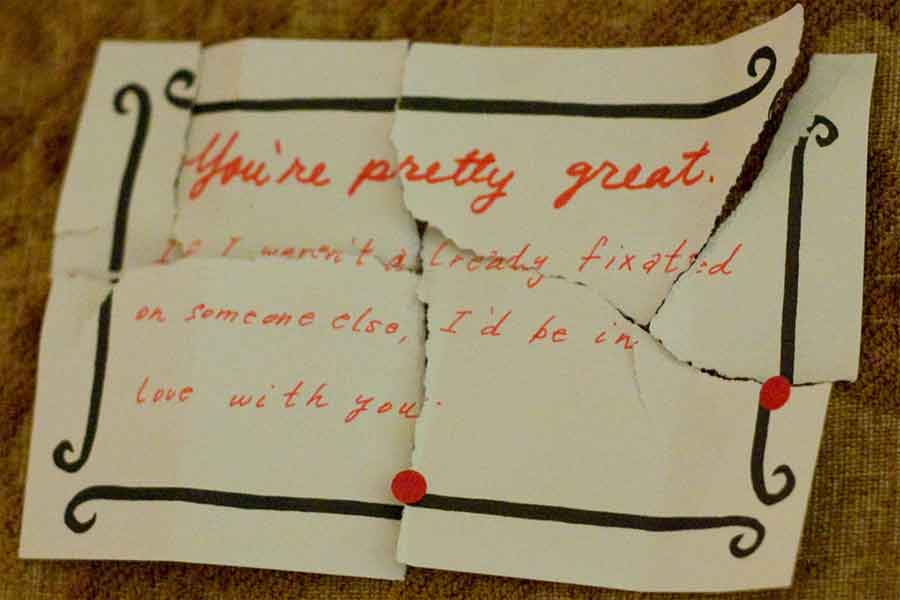 You're pretty great.
If I weren't already fixated
on someone else, I'd be in
love with you.